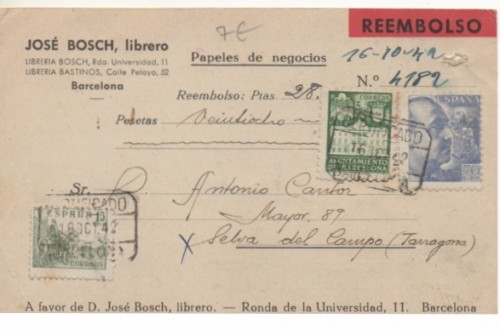 7€
REEMBOLSO
JOSÉ BOSCH, librero
LIBRERIA BOSCH, Rda. Universidad, 11
LIBRERIA BASTINOS, Calle Pelayo, 52
Barcelona
Papeles de negocios
16-10-42
N.º 4182
Reembolso: Ptas. 28.
Pesetas Veintiocho
AYUNTAMIENTO
DE BARCELONA
ESPAÑA
CERTIFICADO
16 OCT. 42
ESPAÑA
CORREOS
Sr. D. Antonio Cantor
Mayor, 89
X Selva del Campo (Tarragona)
A favor de D. José Bosch, librero. — Ronda de la Universidad, 11. Barcelona